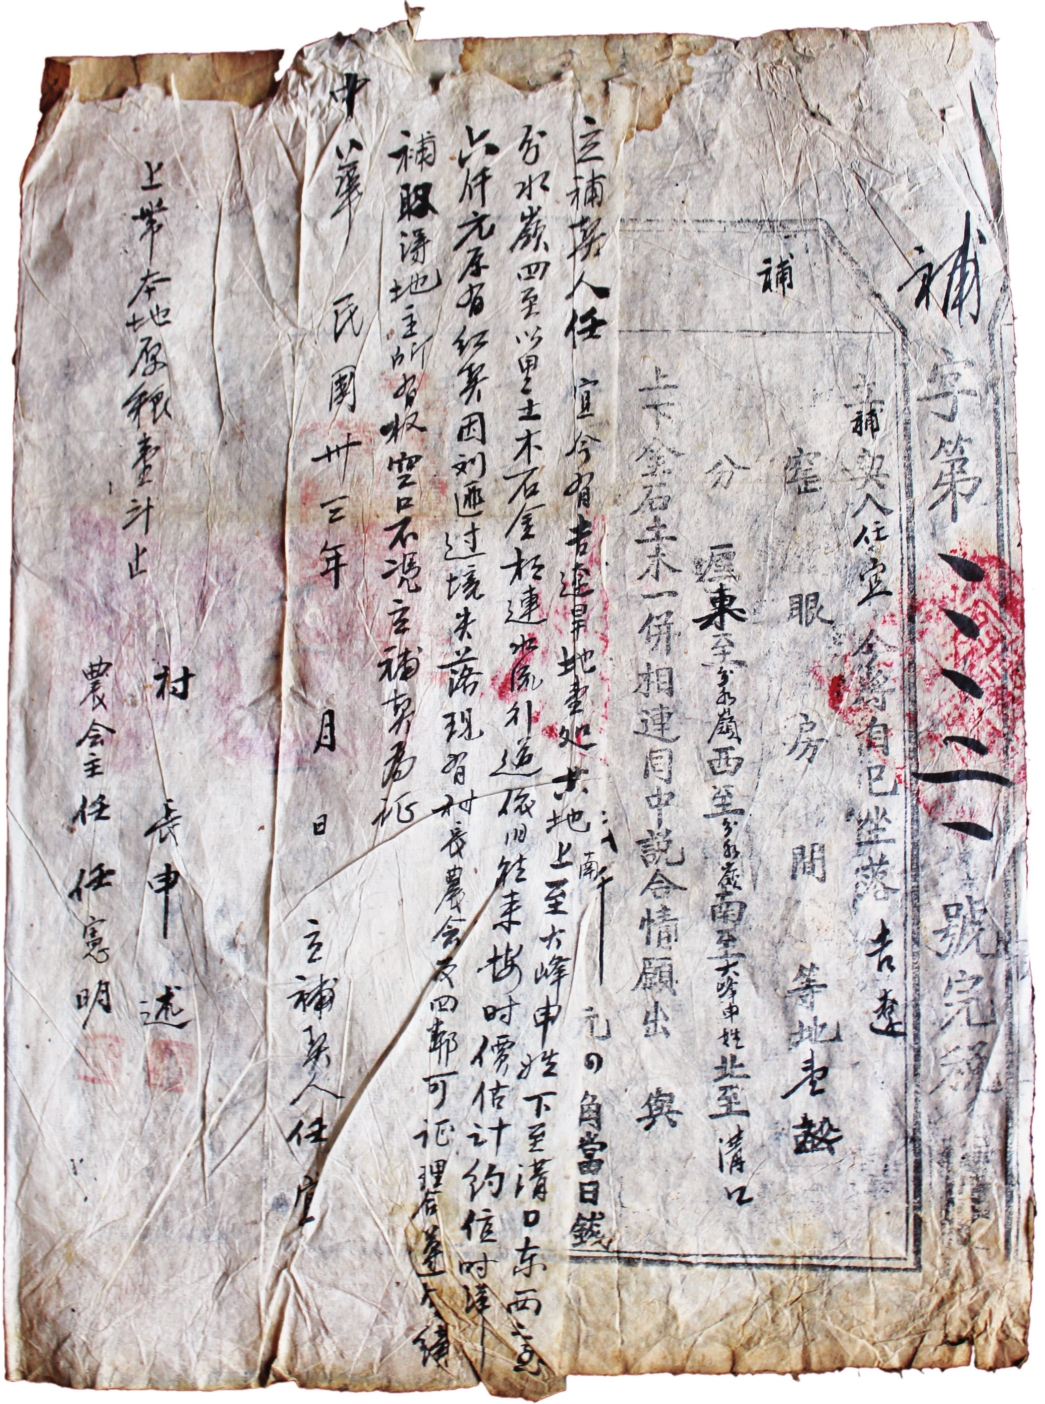 補字第三三二號完稅
補
補契人任宜今將自己坐落吉蓬
窰眼房間等地壹
分東至分水嶺西至分水嶺南至大峰申姓北至溝口
上下金石土木一併相連同中說合情願出與
元角當日錢
立補契人任宜今有吉蓬旱地壹処其地上至大峰申姓下至溝口东西立至
分水嶺四至以里土木石金相連水流引道依旧往来按时價估計約值时洋
六仟元原有红契因刘匪过境失落现有村長農会及四鄰可证理合遵大縣
補取得地主所有权空口不凭立補契為证
中華民國卅三年月日立補契人任宜
上帶本地原粮壹斗止
村長申述
農会主任任憲明